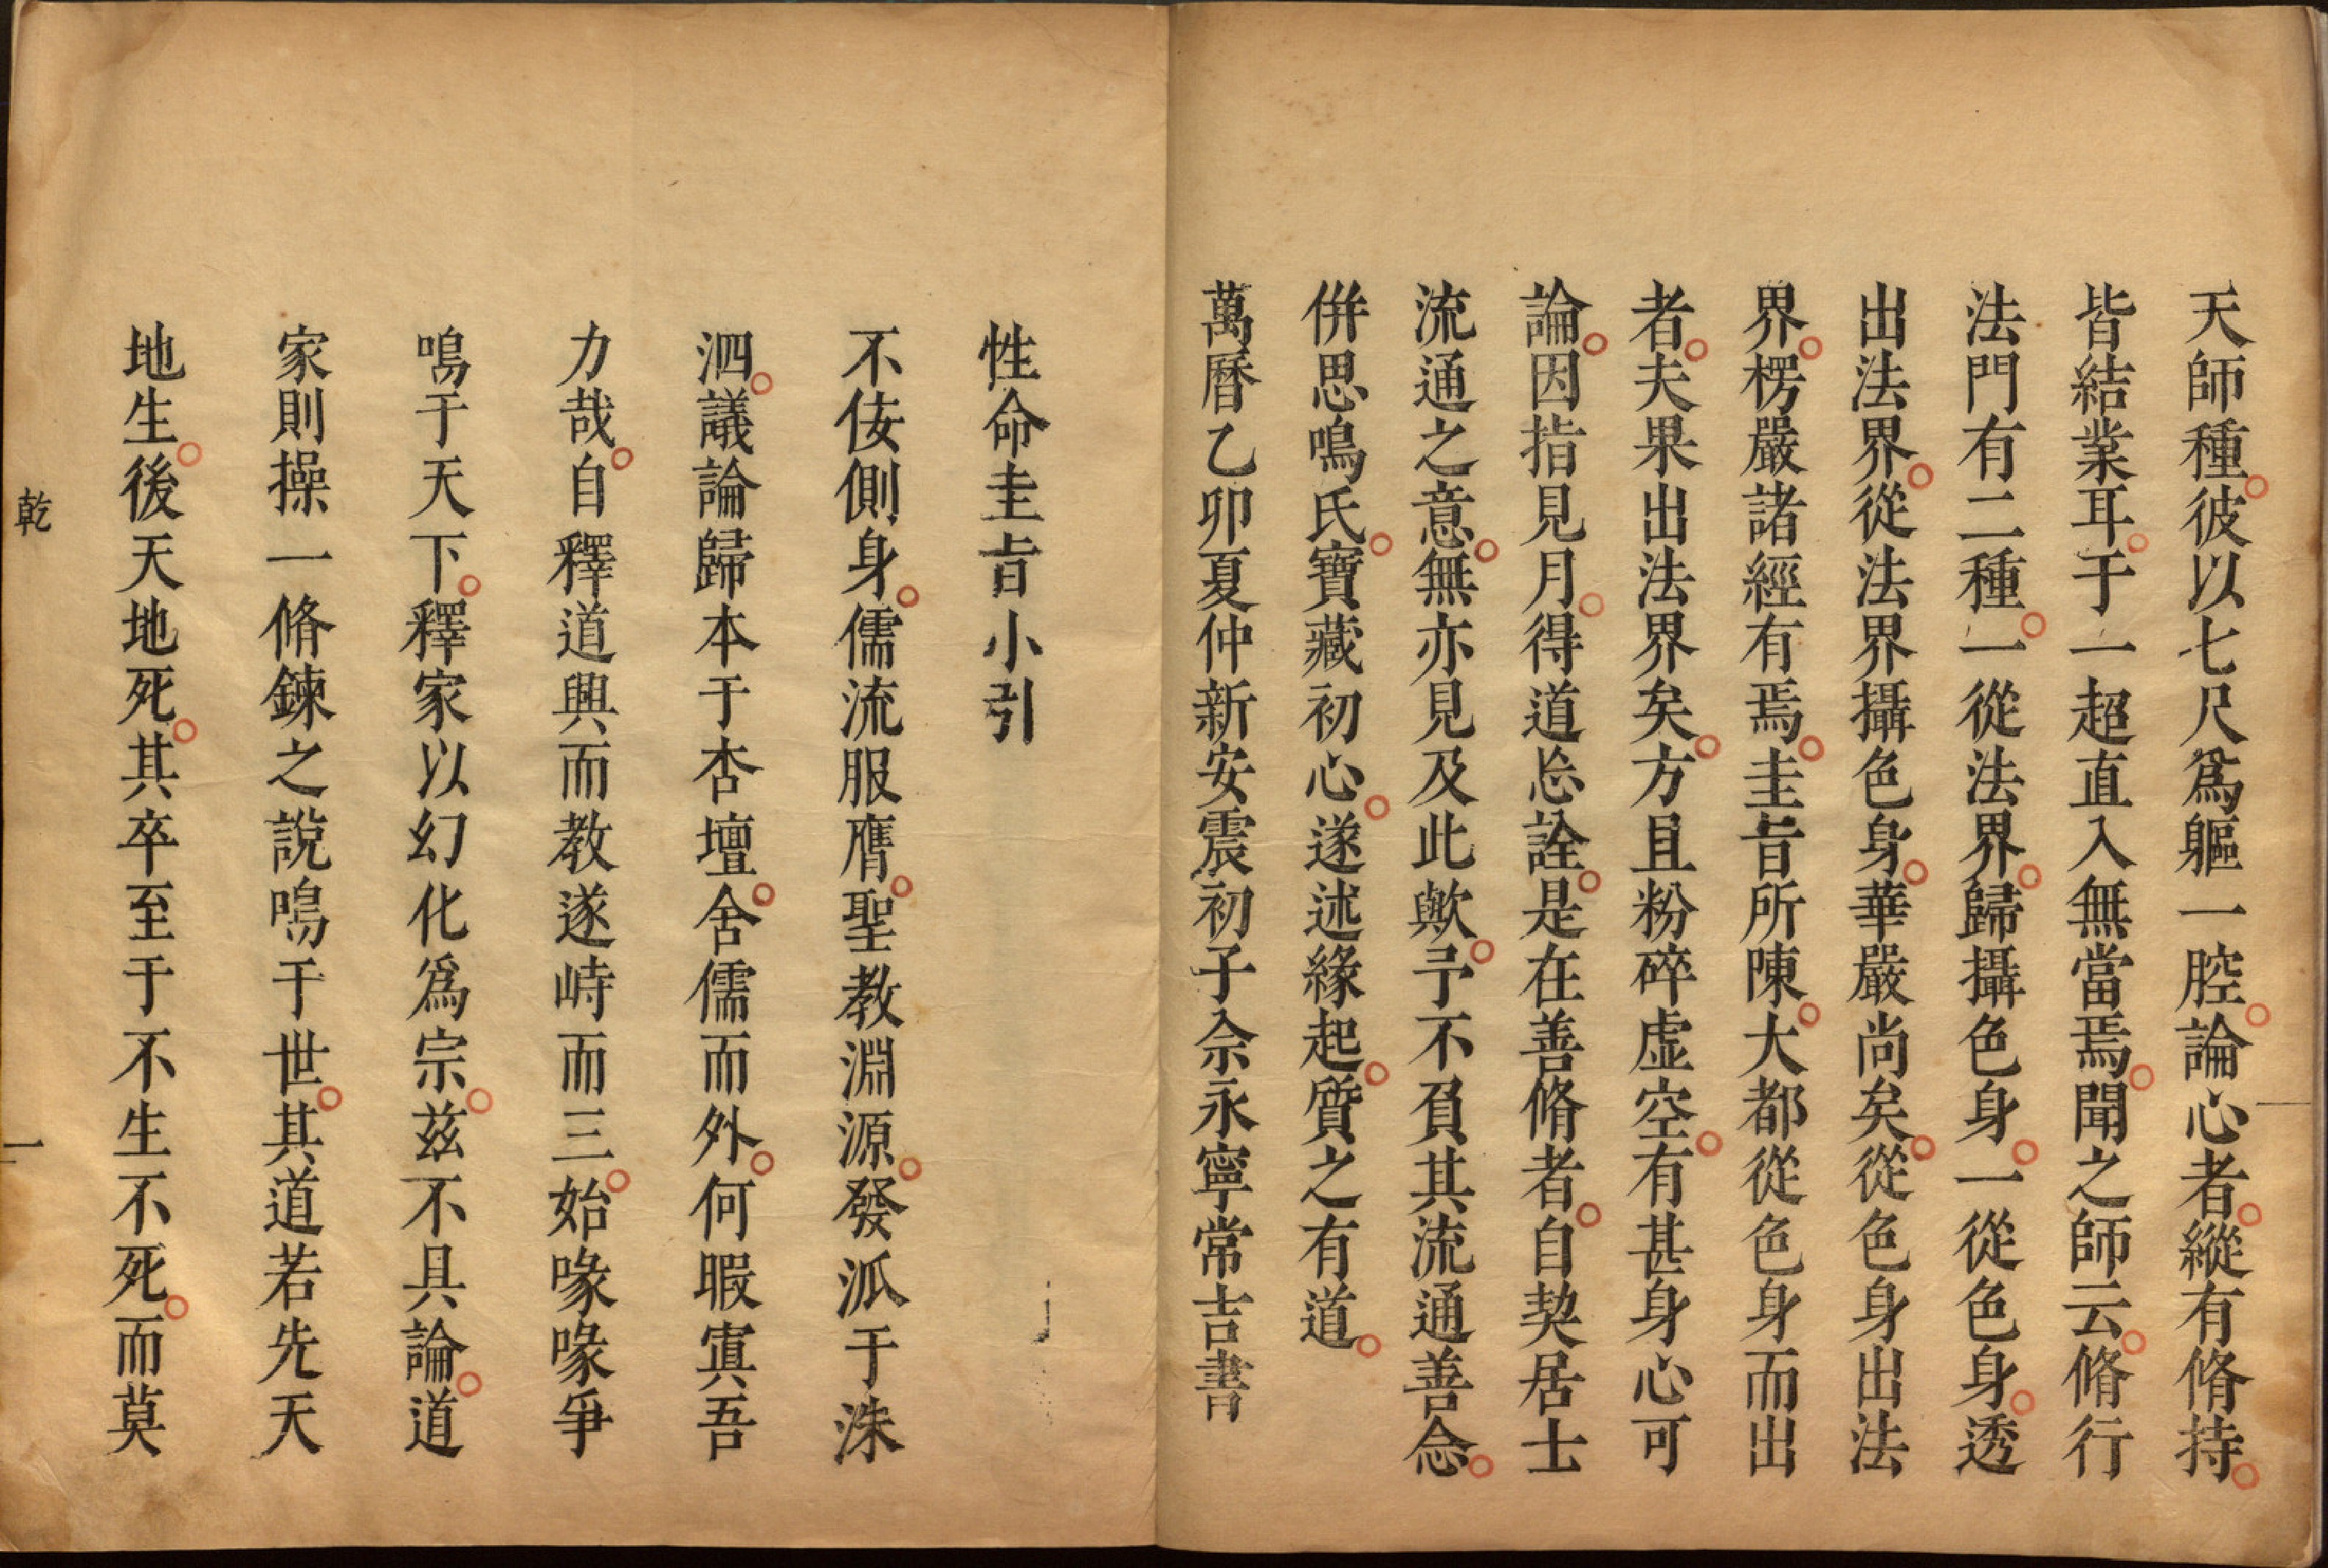 天師種彼以七尺爲軀一腔論心者縱有脩持
皆結業耳于一超直入無當焉聞之師云脩行
法門有二種一從法界歸攝色身一從色身透
出法界從法界攝色身華嚴尚矣從色身出法
界楞嚴諸經有焉圭旨所陳大都從色身而出
者夫果出法界矣方且粉碎虛空有甚身心可
論因指見月得道忘詮是在善脩者自契居士
流通之意無亦見及此歟予不負其流通善念
併思鳴氏寶藏初心遂述緣起質之有道
萬曆乙卯夏仲新安震初子佘永寧常吉書
性命圭旨小引
不佞側身儒流服膺聖教淵源發派于洙
泗議論歸本于杏壇舍儒而外何暇寘吾
力哉自釋道興而教遂峙而三始喙喙爭
鳴于天下釋家以幻化爲宗茲不具論道
家則操一脩鍊之說鳴于世其道若先天
地生後天地死其卒至于不生不死而莫
乾
一